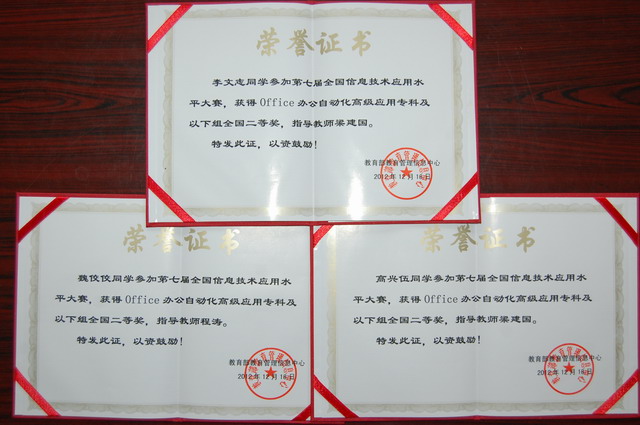 荣誉证书
李文志同学参加第七届全国信息技术应用水
平大赛，获得Office办公自动化高级应用专科及
以下组全国二等奖，指导教师梁建国。
特发此证，以资鼓励！
教育部教育管理信息中心
2012年12月18日
荣誉证书
魏佼佼同学参加第七届全国信息技术应用水
平大赛，获得Office办公自动化高级应用专科及
以下组全国二等奖，指导教师程涛。
特发此证，以资鼓励！
教育部教育管理信息中心
2012年12月18日
荣誉证书
高兴伍同学参加第七届全国信息技术应用水
平大赛，获得Office办公自动化高级应用专科及
以下组全国二等奖，指导教师梁建国。
特发此证，以资鼓励！
教育部教育管理信息中心
2012年12月18日